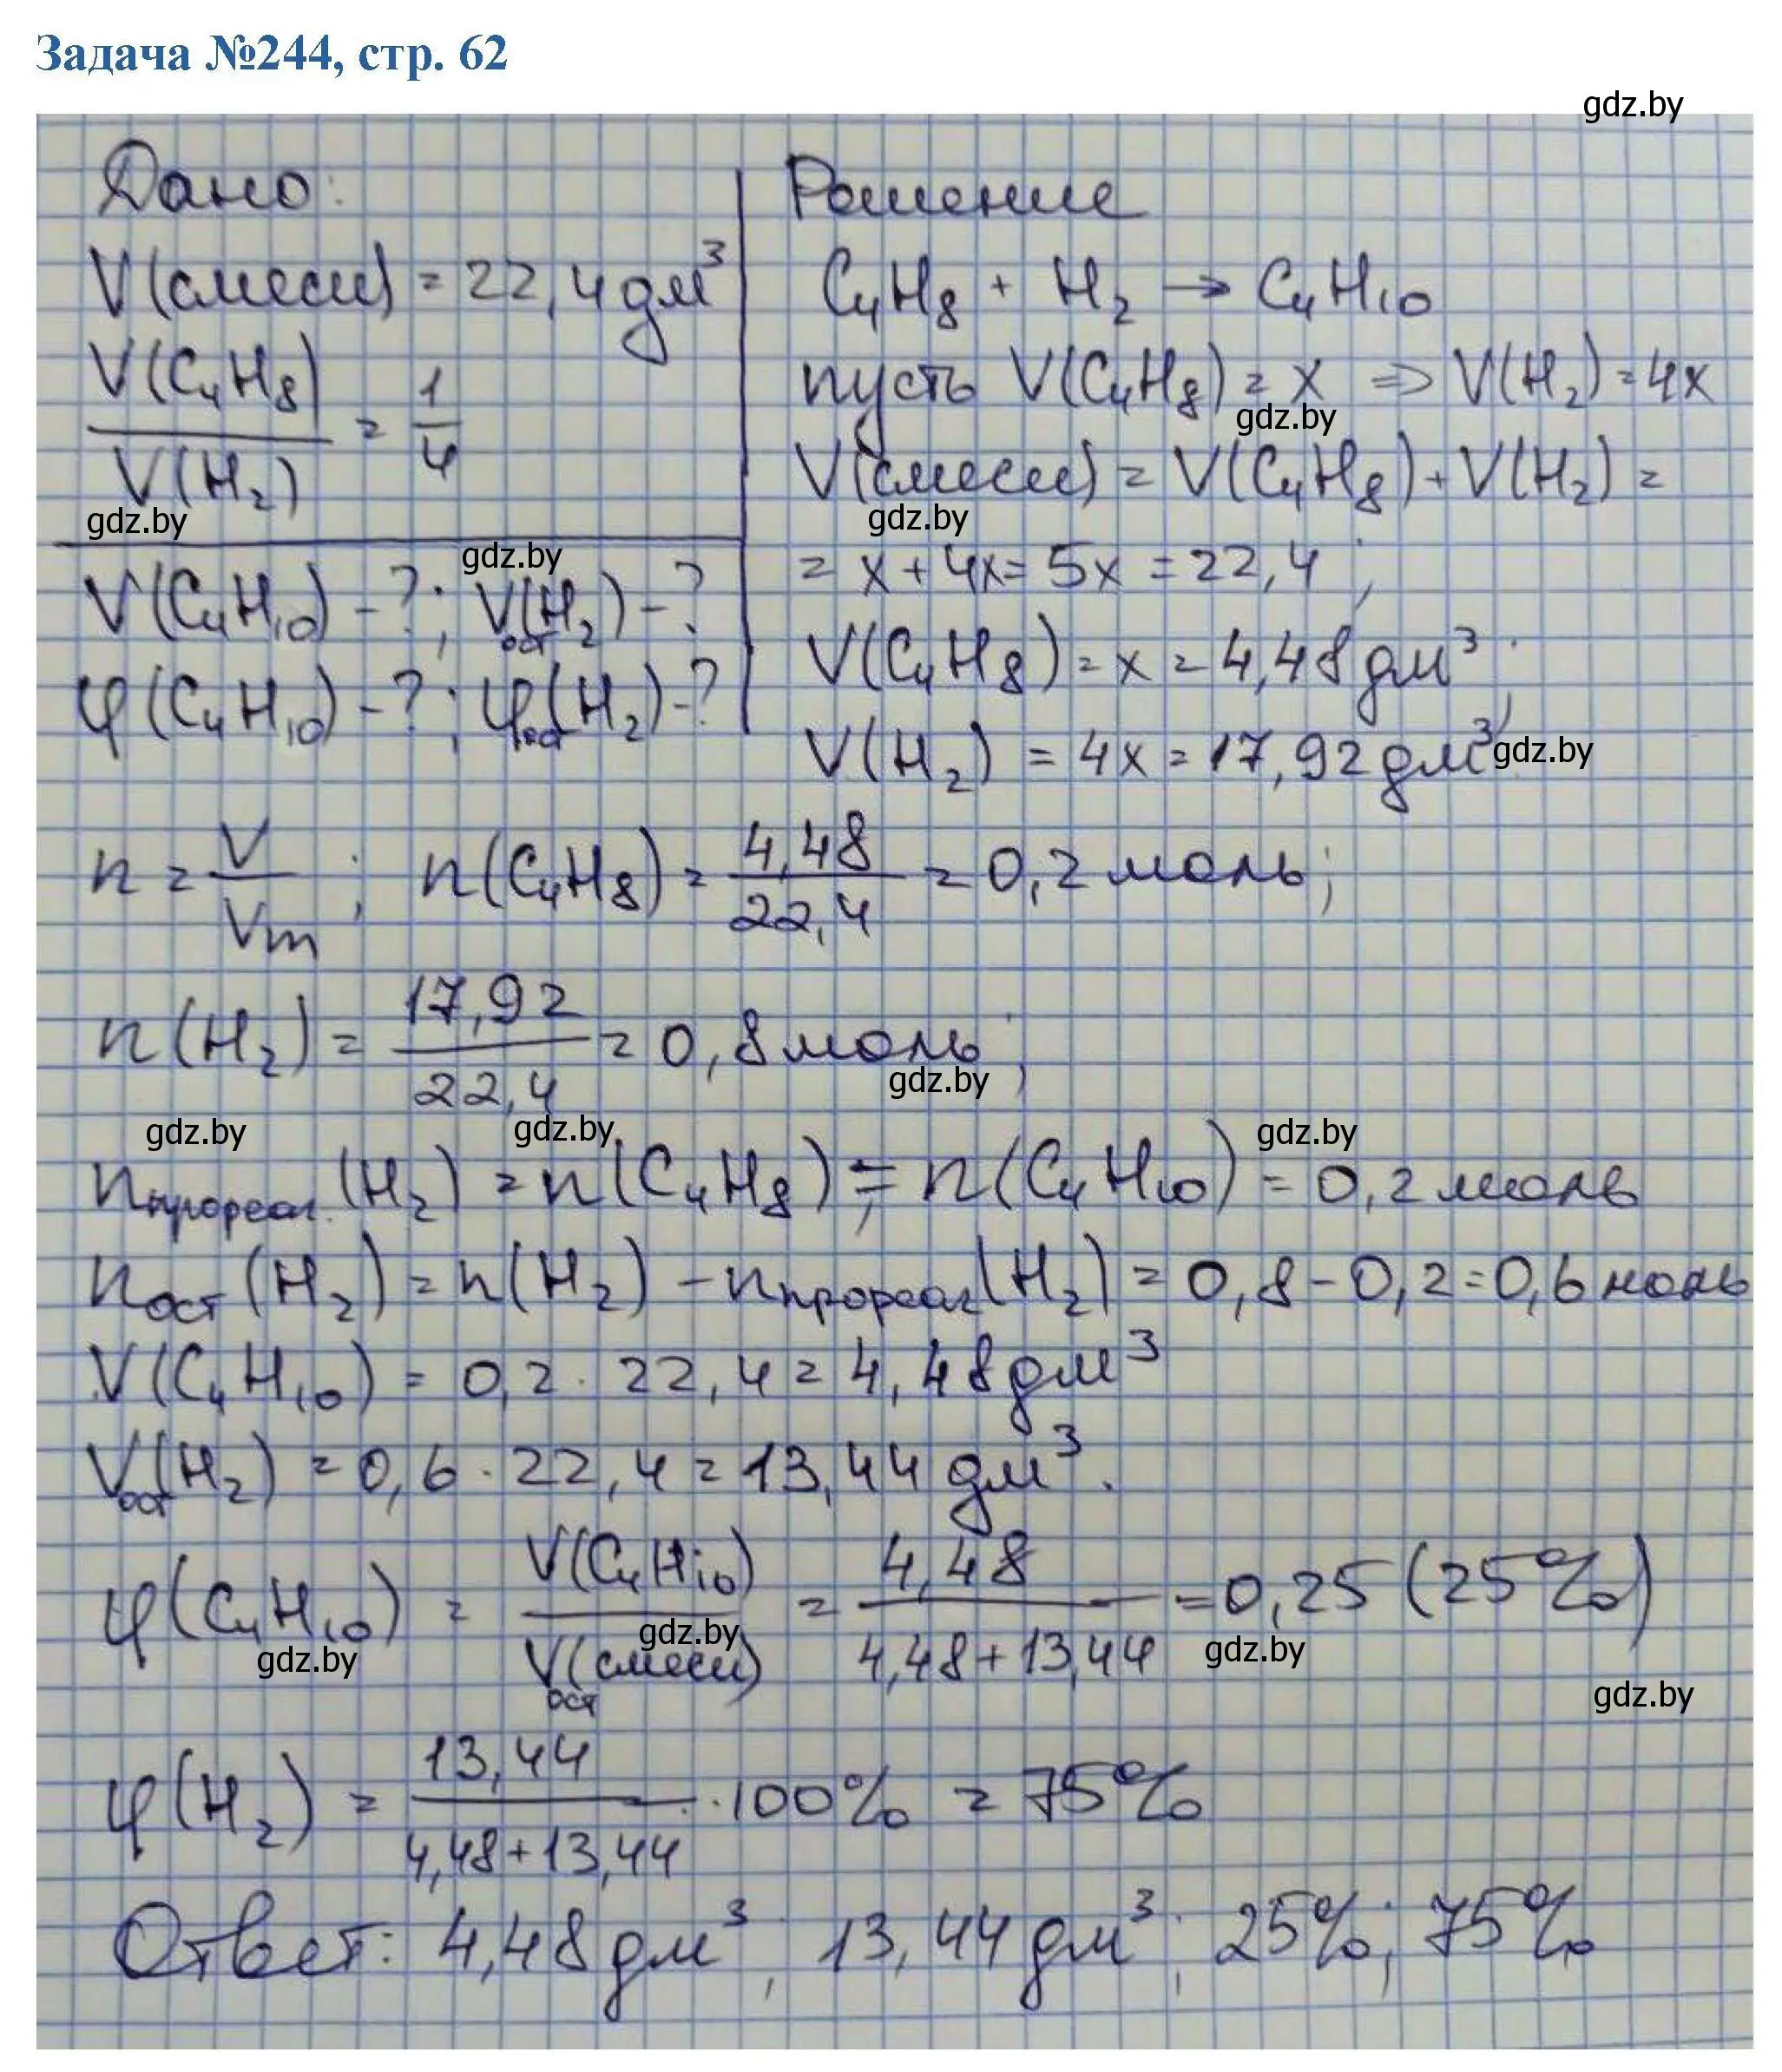 Задача №244, стр. 62
gdz.by
Дано:
V(смеси) = 22,4 дм³
V(C₄H₈) / V(H₂) = 1/4
gdz.by
gdz.by
V(C₄H₁₀) - ?; Vост(H₂) - ?
φ(C₄H₁₀) - ?; φост(H₂) - ?
Решение
C₄H₈ + H₂ → C₄H₁₀
пусть V(C₄H₈) = x => V(H₂) = 4x
gdz.by
V(смеси) = V(C₄H₈) + V(H₂) =
gdz.by
= x + 4x = 5x = 22,4;
V(C₄H₈) = x = 4,48 дм³;
V(H₂) = 4x = 17,92 дм³
gdz.by
n = V/Vm; n(C₄H₈) = 4,48/22,4 = 0,2 моль;
n(H₂) = 17,92/22,4 = 0,8 моль;
gdz.by
gdz.by gdz.by gdz.by
nпрореаг.(H₂) = n(C₄H₈) = n(C₄H₁₀) = 0,2 моль
nост(H₂) = n(H₂) - nпрореаг(H₂) = 0,8 - 0,2 = 0,6 моль
V(C₄H₁₀) = 0,2 · 22,4 = 4,48 дм³
Vост(H₂) = 0,6 · 22,4 = 13,44 дм³.
φ(C₄H₁₀) = V(C₄H₁₀) / Vост(смеси) = 4,48 / (4,48 + 13,44) = 0,25 (25%)
gdz.by gdz.by gdz.by
gdz.by
φ(H₂) = 13,44 / (4,48 + 13,44) · 100% = 75%
Ответ: 4,48 дм³; 13,44 дм³; 25%; 75%